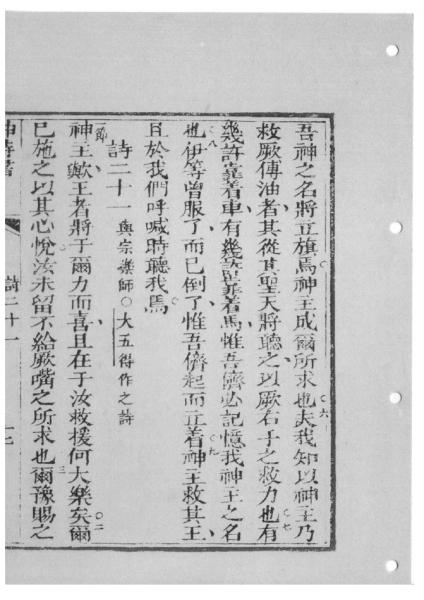 吾神之名將立旗焉神主成爾所求也。六夫我知以神主乃
救厥傅油者其從其聖天將聽之以厥右手之救力也。七有
幾許靠着車、有幾許靠着馬、惟吾儕必記憶我神王之名
也。八伊等曾服了、而已倒了、惟吾儕起而立着。九神主救其王、
且於我們呼喊時聽我焉。
詩二十一 與宗樂師○大五得作之詩
一節神主、歟王者將于爾力而喜、且在于汝救援何大樂矣。二爾
已施之以其心悅汝未留不給厥嘴之所求也。三爾豫賜之
神詩書 詩二十一